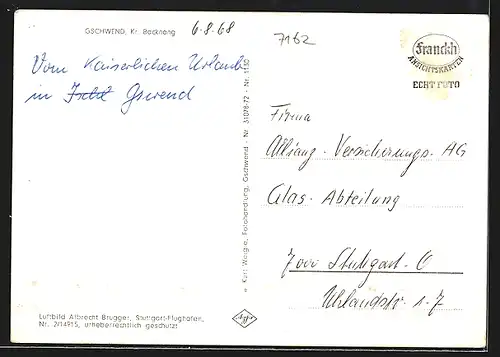 GSCHWEND, Kr. Backnang
6-8.68
7162
Vom Kaiserlichen Urlaub
in Ischl Gswend
Franckh
ANSICHTSKARTEN
ECHT FOTO
Firma
Allianz-Versicherungs-AG
Glas-Abteilung
7000 Stuttgart-O
Uhlandstr. 1-7
Kurt Weigle, Fotohandlung, Gschwend - Nr. 31078-72 - Nr. 1130
Luftbild Albrecht Brugger, Stuttgart-Flughafen,
Nr. 2/14915, urheberrechtlich geschützt
Agfa